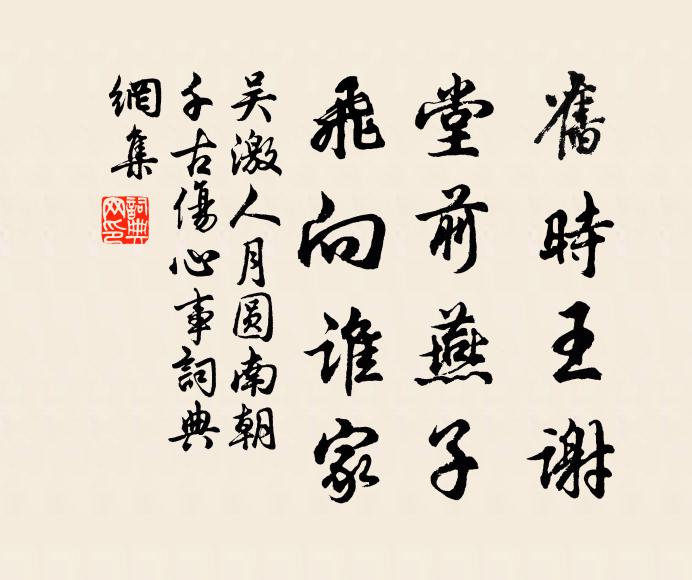 舊時王謝
堂前燕子
飛向誰家
吴激人月圆南朝
千古傷心事詞典
網集
詞典
网印